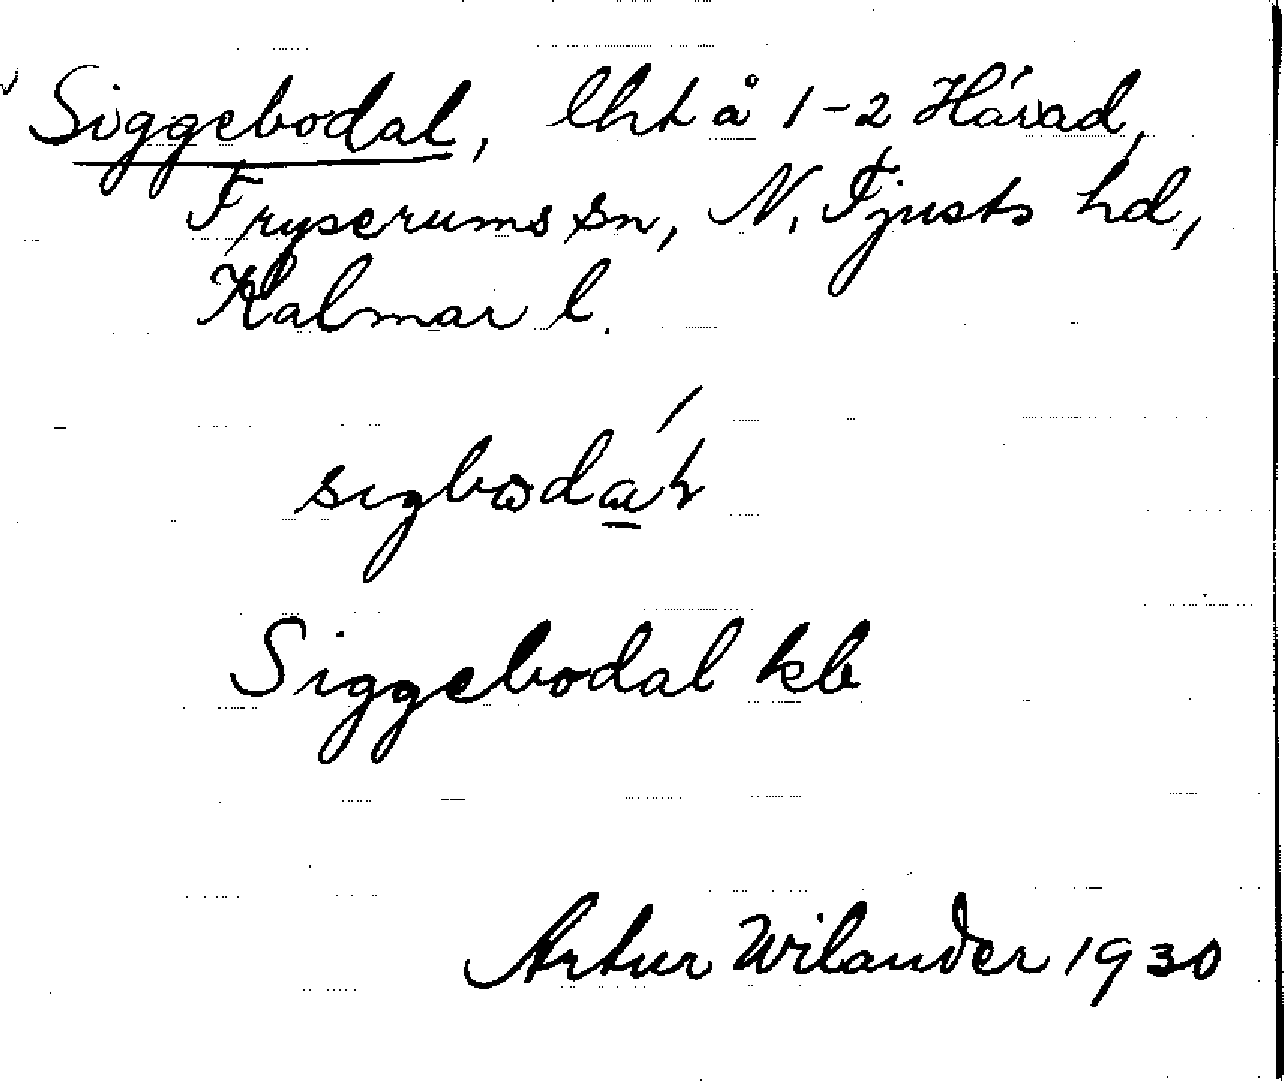 Siggebodal, lht å 1-2 Hávad,
Fryserums sn, N. Tjusts hd,
Kalmar l.
Siggebodal kb
Artur Wilander 1930